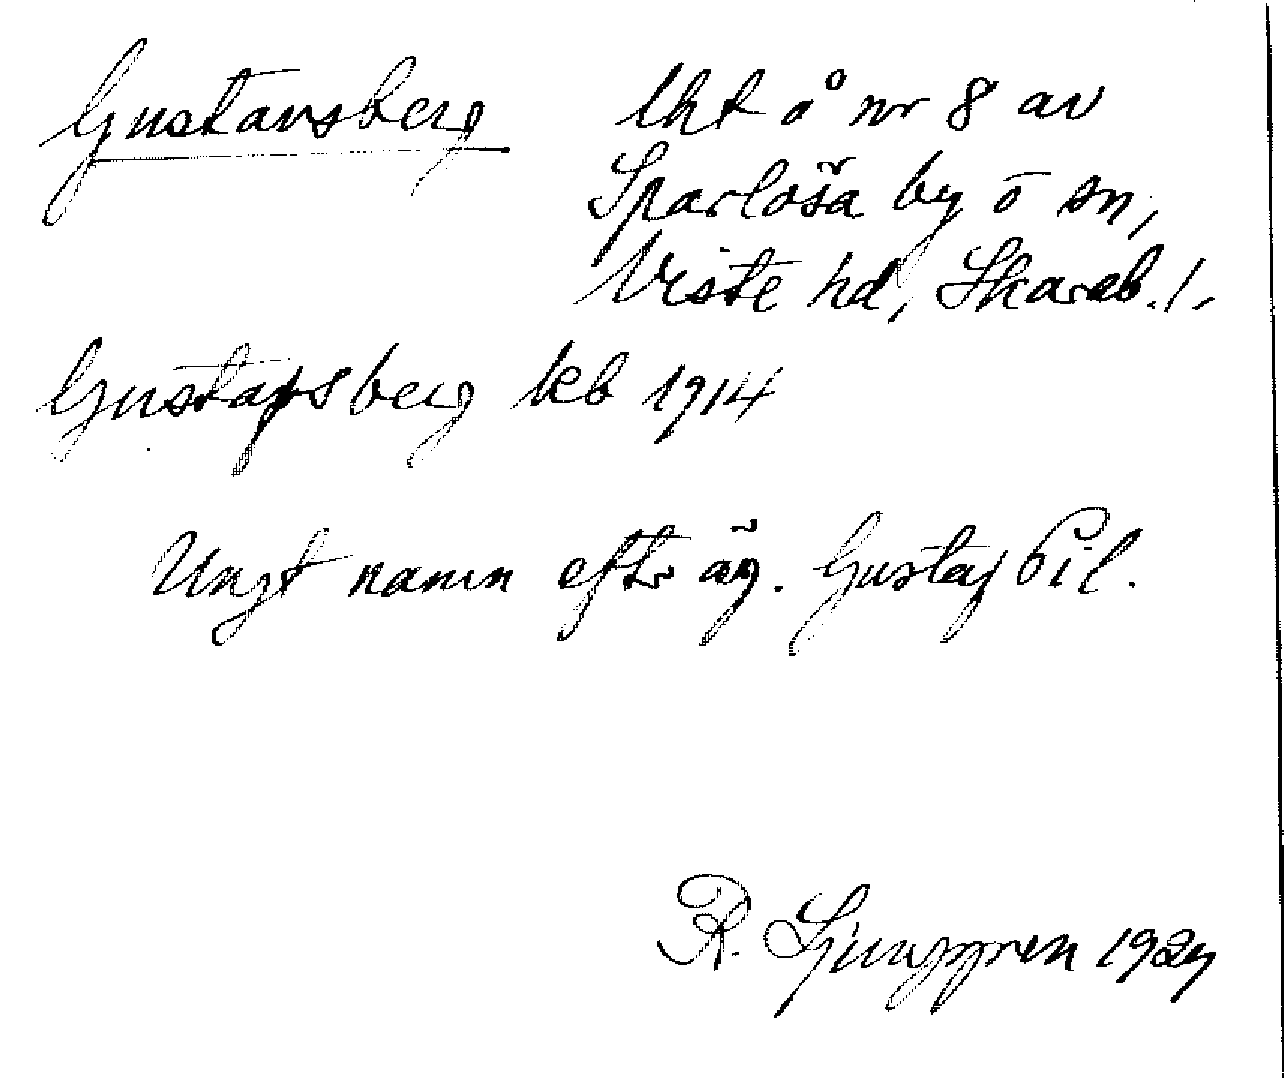 Gustavsberg lht å nr 8 av
Sparlösa by o sn,
Viste hd, Skarab. l.
Gustafsberg keb 1914
Ungt namn eftr äg. Gustaf Pil.
R. Ljunggren 1927